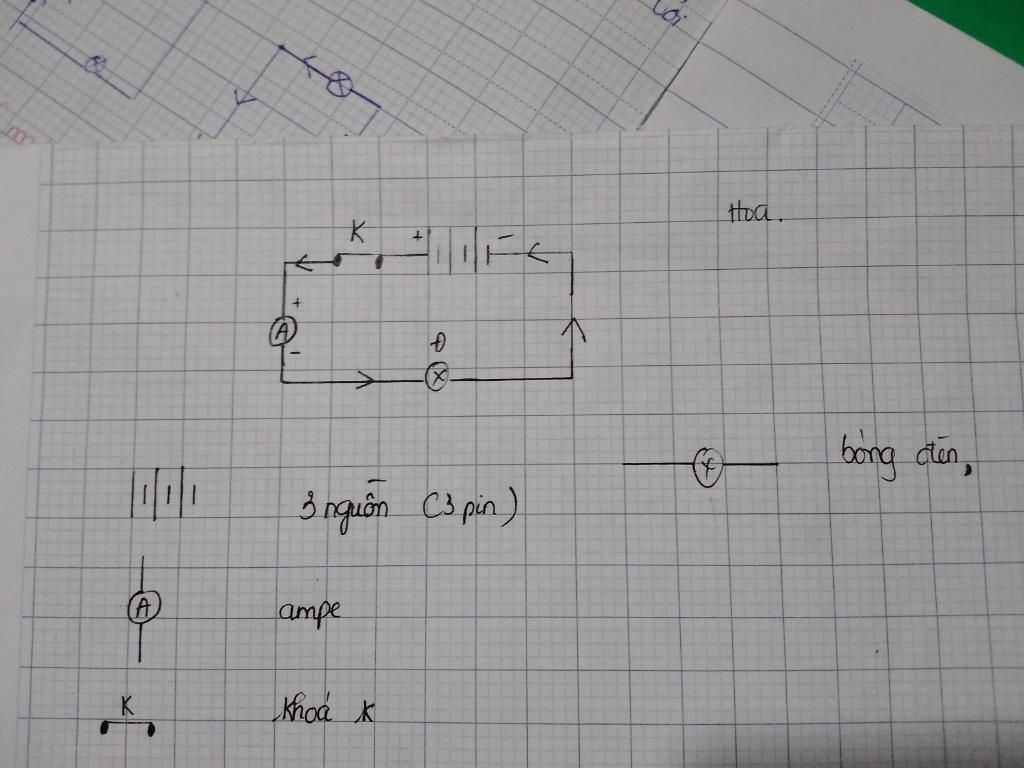 lời
m
Hoa.
K
+ -
+
A
-
Đ
bóng đèn,
3 nguồn (3 pin)
A
ampe
K
khoá K